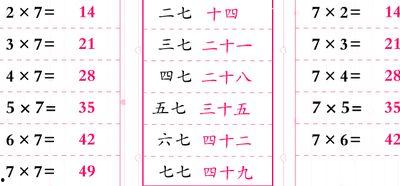 2 × 7 = 14
二七 十四
7 × 2 = 14
3 × 7 = 21
三七 二十一
7 × 3 = 21
4 × 7 = 28
四七 二十八
7 × 4 = 28
5 × 7 = 35
五七 三十五
7 × 5 = 35
6 × 7 = 42
六七 四十二
7 × 6 = 42
7 × 7 = 49
七七 四十九